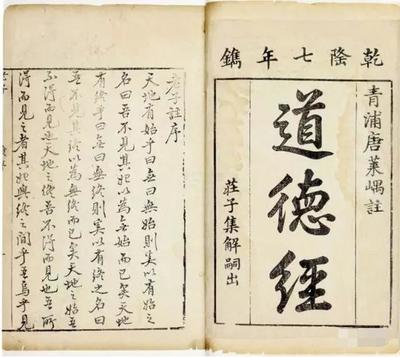 乾隆七年鐫
青浦唐萊嵎註
道德經
莊子集解嗣出
老子註序
天地有始乎曰無無始則奚以有始之
名曰吾不見其始以為無始而已矣天地
有終乎曰無無終則奚以有終之名曰
吾不見其終以為無終而已矣天地之始吾
不得而見也天地之終吾不得而見也吾所
得而見之者其始與終之間乎吾烏乎見